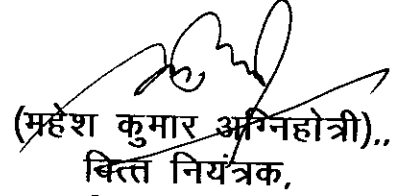 (महेश कुमार अग्निहोत्री),,
वित्त नियंत्रक,